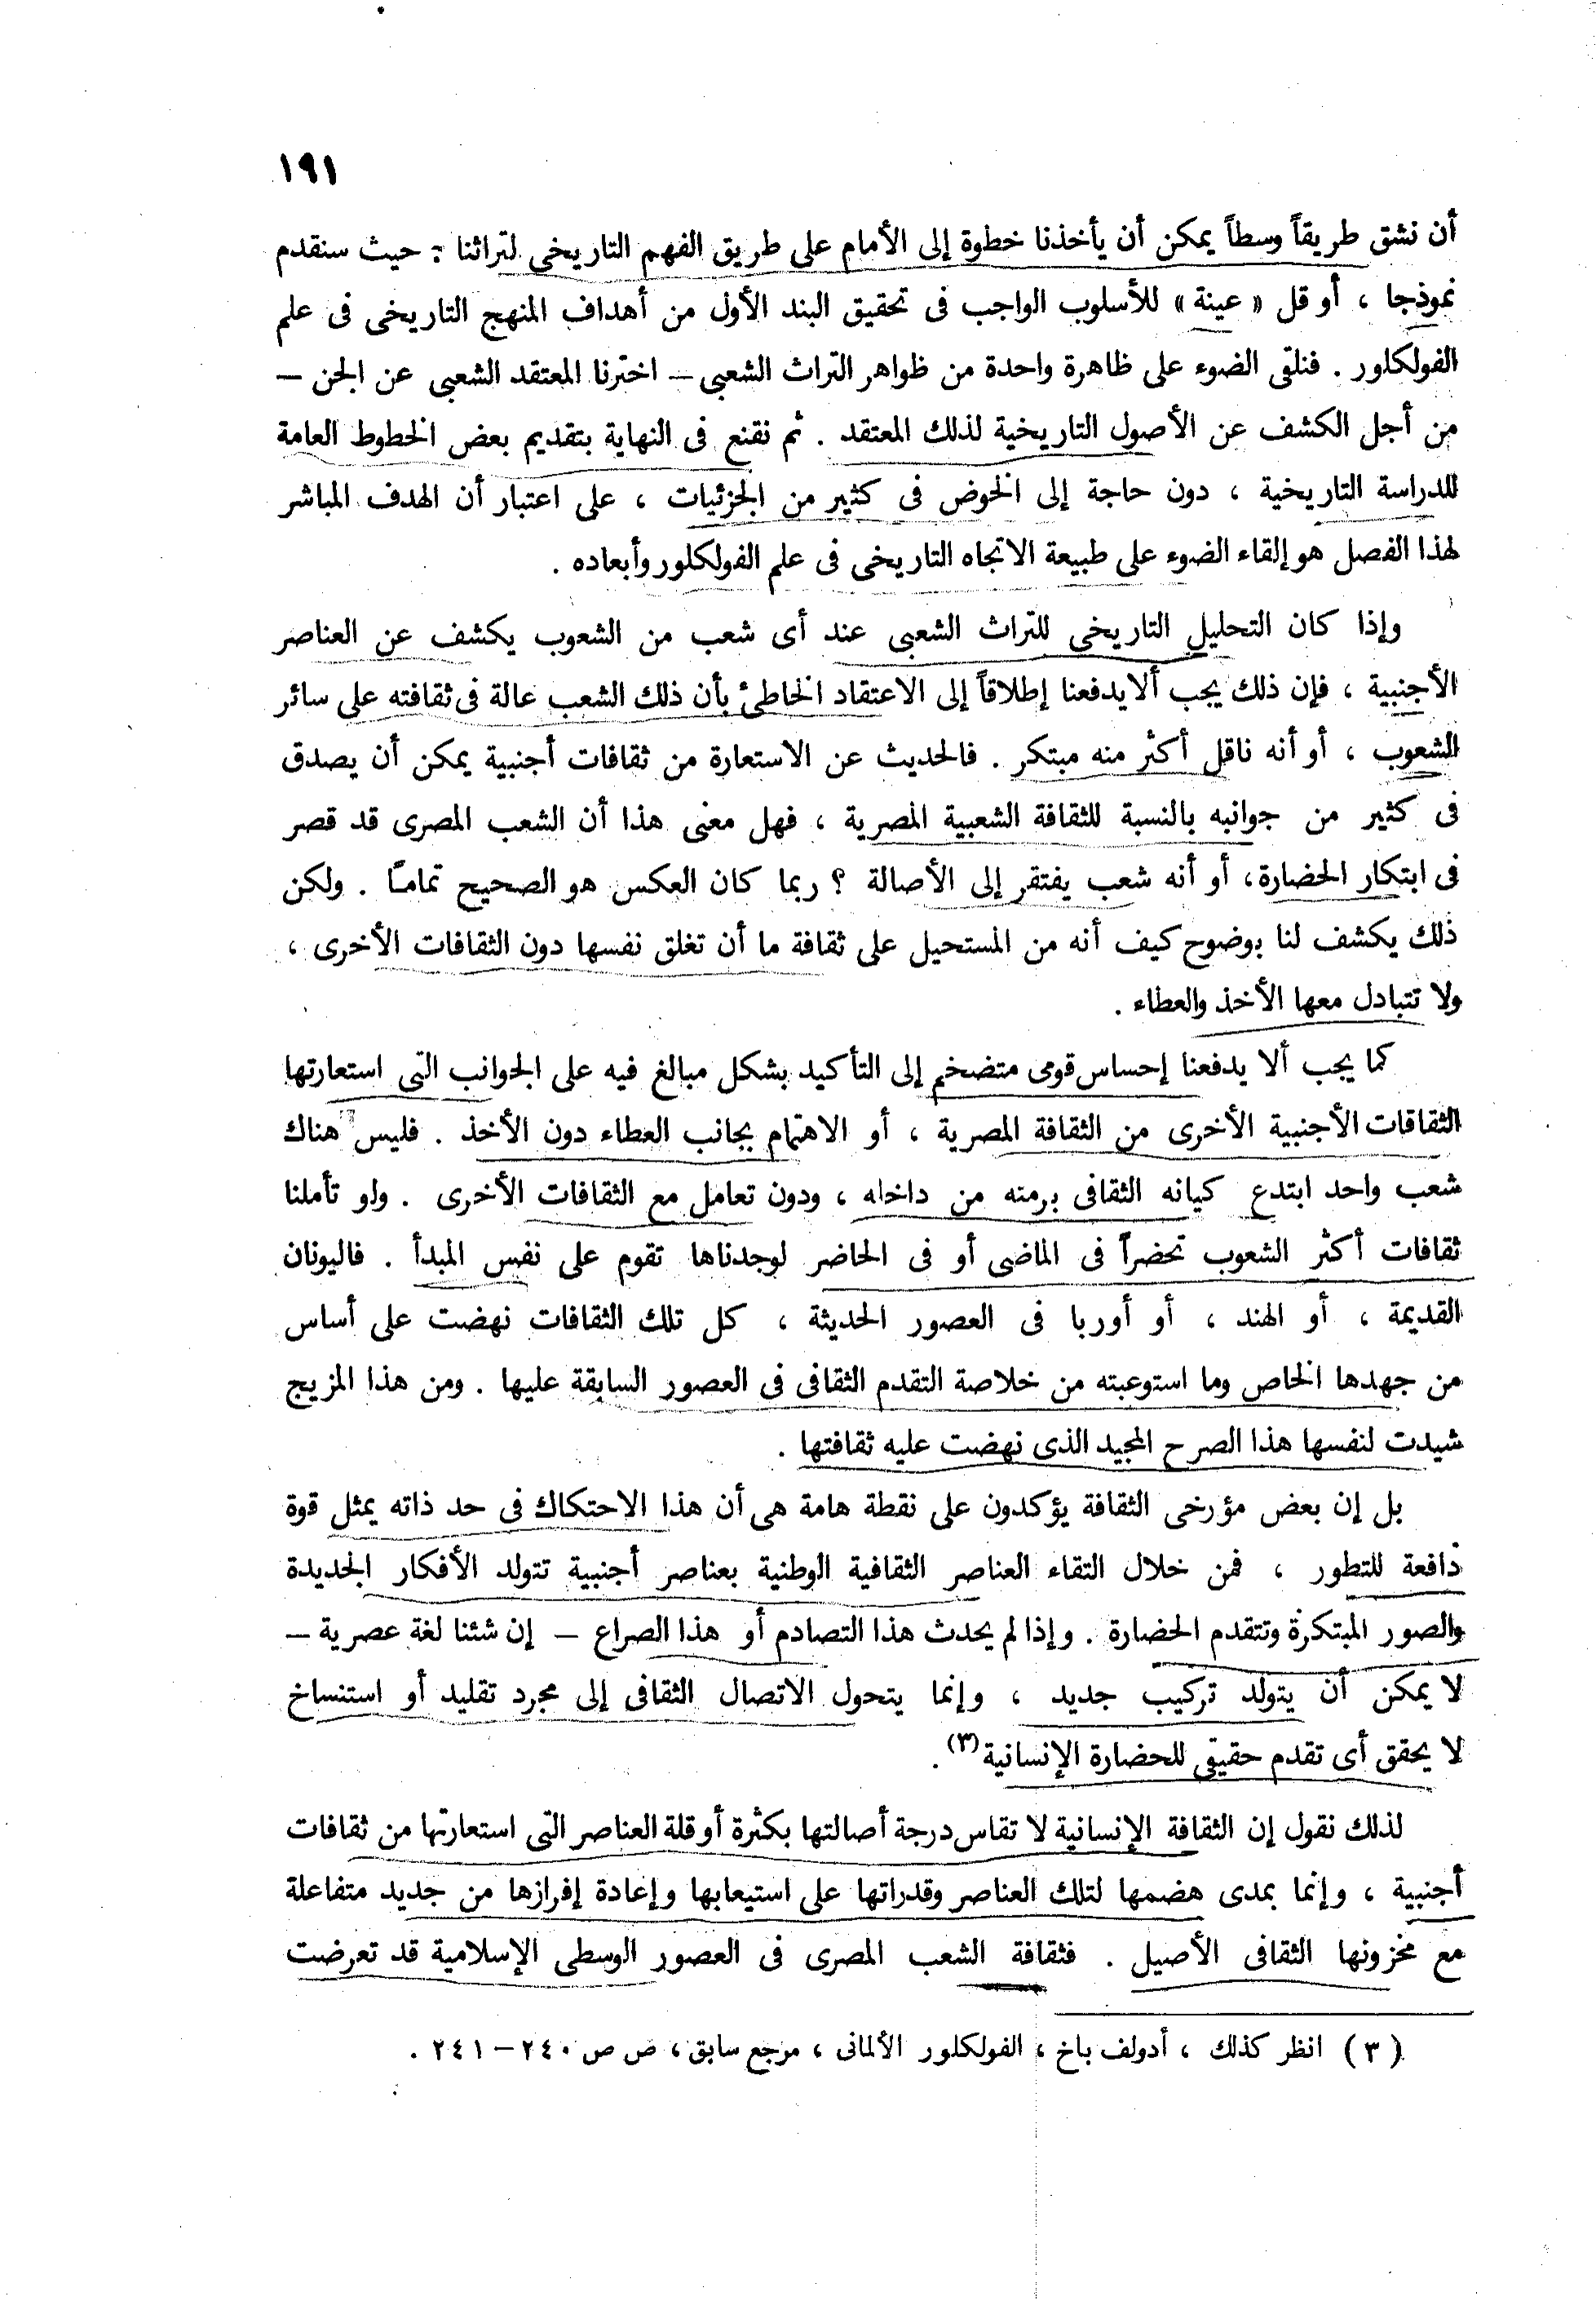 ١٩١
أن نشق طريقاً وسطاً يمكن أن يأخذنا خطوة إلى الأمام على طريق الفهم التاريخى لتراثنا : حيث سنقدم
نموذجا ، أو قل « عينة » للأسلوب الواجب فى تحقيق البند الأول من أهداف المنهج التاريخى فى علم
الفولكلور . فنلقى الضوء على ظاهرة واحدة من ظواهر التراث الشعبى – اخترنا المعتقد الشعبى عن الجن –
من أجل الكشف عن الأصول التاريخية لذلك المعتقد . ثم نقنع فى النهاية بتقديم بعض الخطوط العامة
للدراسة التاريخية ، دون حاجة إلى الخوض فى كثير من الجزئيات ، على اعتبار أن الهدف المباشر
لهذا الفصل هو إلقاء الضوء على طبيعة الاتجاه التاريخى فى علم الفولكلور وأبعاده .
وإذا كان التحليل التاريخى للتراث الشعبى عند أى شعب من الشعوب يكشف عن العناصر
الأجنبية ، فإن ذلك يجب ألا يدفعنا إطلاقاً إلى الاعتقاد الخاطئ بأن ذلك الشعب عالة فى ثقافته على سائر
الشعوب ، أو أنه ناقل أكثر منه مبتكر . فالحديث عن الاستعارة من ثقافات أجنبية يمكن أن يصدق
فى كثير من جوانبه بالنسبة للثقافة الشعبية المصرية ، فهل معنى هذا أن الشعب المصرى قد قصر
فى ابتكار الحضارة، أو أنه شعب يفتقر إلى الأصالة ؟ ربما كان العكس هو الصحيح تماماً . ولكن
ذلك يكشف لنا بوضوح كيف أنه من المستحيل على ثقافة ما أن تغلق نفسها دون الثقافات الأخرى ،
ولا تتبادل معها الأخذ والعطاء .
كما يجب ألا يدفعنا إحساس قومى متضخم إلى التأكيد بشكل مبالغ فيه على الجوانب التى استعارتها
الثقافات الأجنبية الأخرى من الثقافة المصرية ، أو الاهتمام بجانب العطاء دون الأخذ . فليس هناك
شعب واحد ابتدع كيانه الثقافى برمته من داخله ، ودون تعامل مع الثقافات الأخرى . ولو تأملنا
ثقافات أكثر الشعوب تحضراً فى الماضى أو فى الحاضر لوجدناها تقوم على نفس المبدأ . فاليونان
القديمة ، أو الهند ، أو أوربا فى العصور الحديثة ، كل تلك الثقافات نهضت على أساس
من جهدها الخاص وما استوعبته من خلاصة التقدم الثقافى فى العصور السابقة عليها . ومن هذا المزيج
شيدت لنفسها هذا الصرح المجيد الذى نهضت عليه ثقافتها .
بل إن بعض مؤرخى الثقافة يؤكدون على نقطة هامة هى أن هذا الاحتكاك فى حد ذاته يمثل قوة
دافعة للتطور ، فمن خلال التقاء العناصر الثقافية الوطنية بعناصر أجنبية تتولد الأفكار الجديدة
والصور المبتكرة وتتقدم الحضارة . وإذا لم يحدث هذا التصادم أو هذا الصراع – إن شئنا لغة عصرية –
لا يمكن أن يتولد تركيب جديد ، وإنما يتحول الاتصال الثقافى إلى مجرد تقليد أو استنساخ
لا يحقق أى تقدم حقيقى للحضارة الإنسانية (٣) .
لذلك نقول إن الثقافة الإنسانية لا تقاس درجة أصالتها بكثرة أو قلة العناصر التى استعارتها من ثقافات
أجنبية ، وإنما بمدى هضمها لتلك العناصر وقدراتها على استيعابها وإعادة إفرازها من جديد متفاعلة
مع مخزونها الثقافى الأصيل . فثقافة الشعب المصرى فى العصور الوسطى الإسلامية قد تعرضت
(٣) انظر كذلك ، أدولف باخ ، الفولكلور الألمانى ، مرجع سابق، ص ص ٢٤٠ – ٢٤١ .